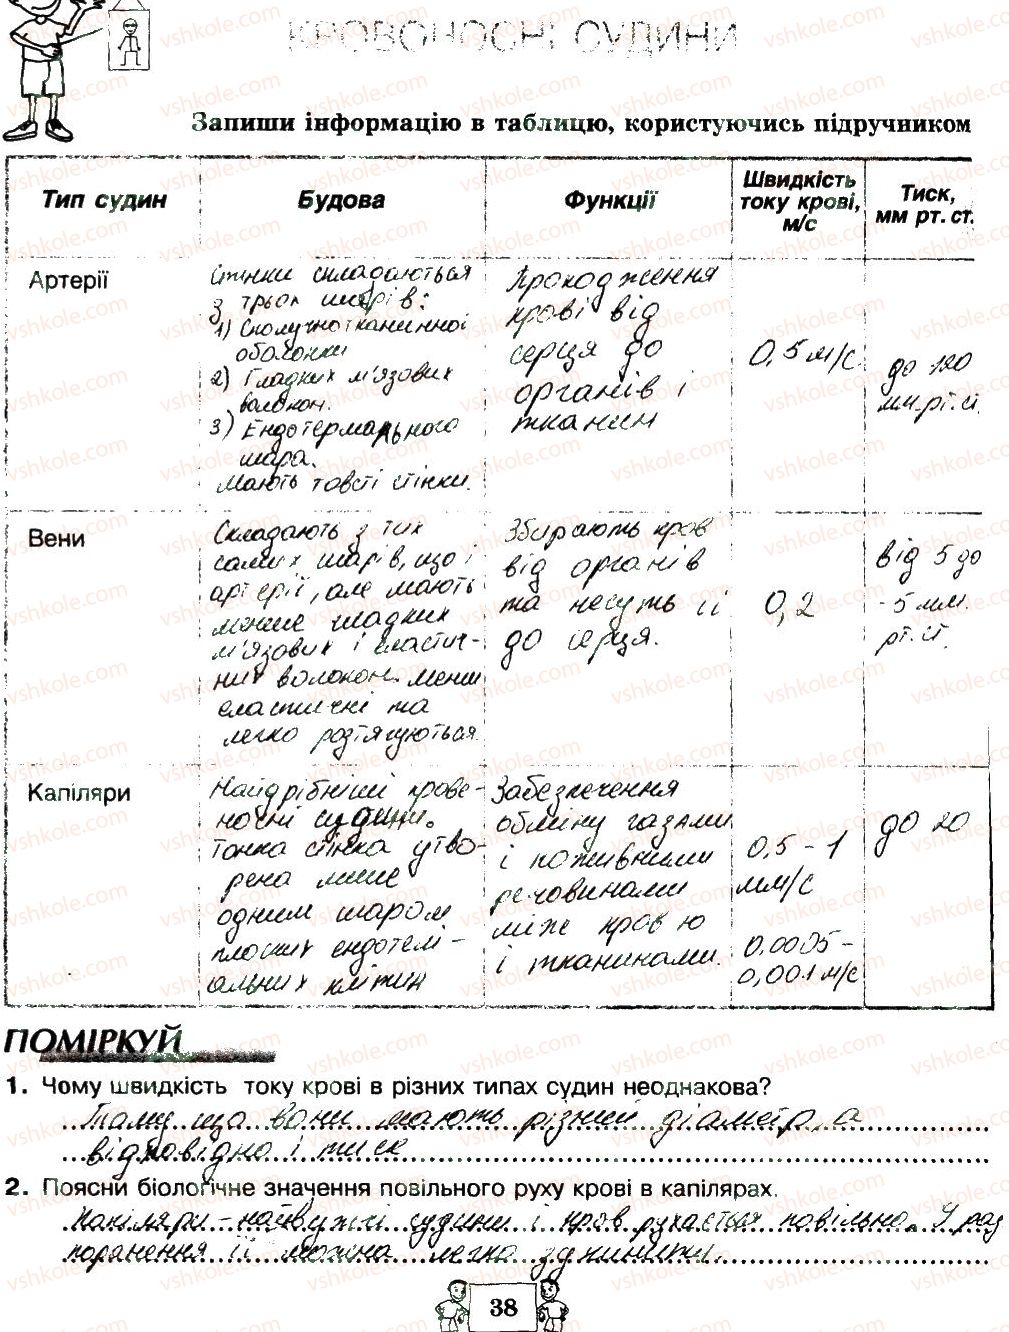 КРОВОНОСНІ СУДИНИ
Запиши інформацію в таблицю, користуючись підручником
Тип судин
Будова
Функції
Швидкість
току крові,
м/с
Тиск,
мм рт. ст.
Артерії
Стінки складаються
з трьох шарів:
1) Сполучнотканинної
оболонки
2) Гладких м'язових
волокон.
3) Ендотермального
шара.
Мають товсті стінки.
Проходження
крові від
серця до
органів і
тканин
0,5 м/с
до 120
мм.рт.ст.
Вени
Складають з тих
самих шарів, що і
артерії, але мають
менше гладких
м'язових і еластич-
них волокон. менш
еластичні та
легко розтягуються
Збирають кров
від органів
та несуть її
до серця.
0,2
від 5 до
-5 мм.
рт.ст.
Капіляри
Найдрібніші крове-
носні судини.
тонка стінка утво-
рена лише
одним шаром
плоских ендотелі-
альних клітин
Забезпечення
обміну газами
і поживними
речовинами
між кров'ю
і тканинами.
0,5 - 1
мм/с
0,0005 -
0,001 м/с
до 20
ПОМІРКУЙ
1. Чому швидкість току крові в різних типах судин неоднакова?
Тому що вони мають різний діаметр, а
відповідно і тиск
2. Поясни біологічне значення повільного руху крові в капілярах.
Капіляри - найвужчі судини і кров рухається повільно. У раз
поранення її можна легко зупинити.
38